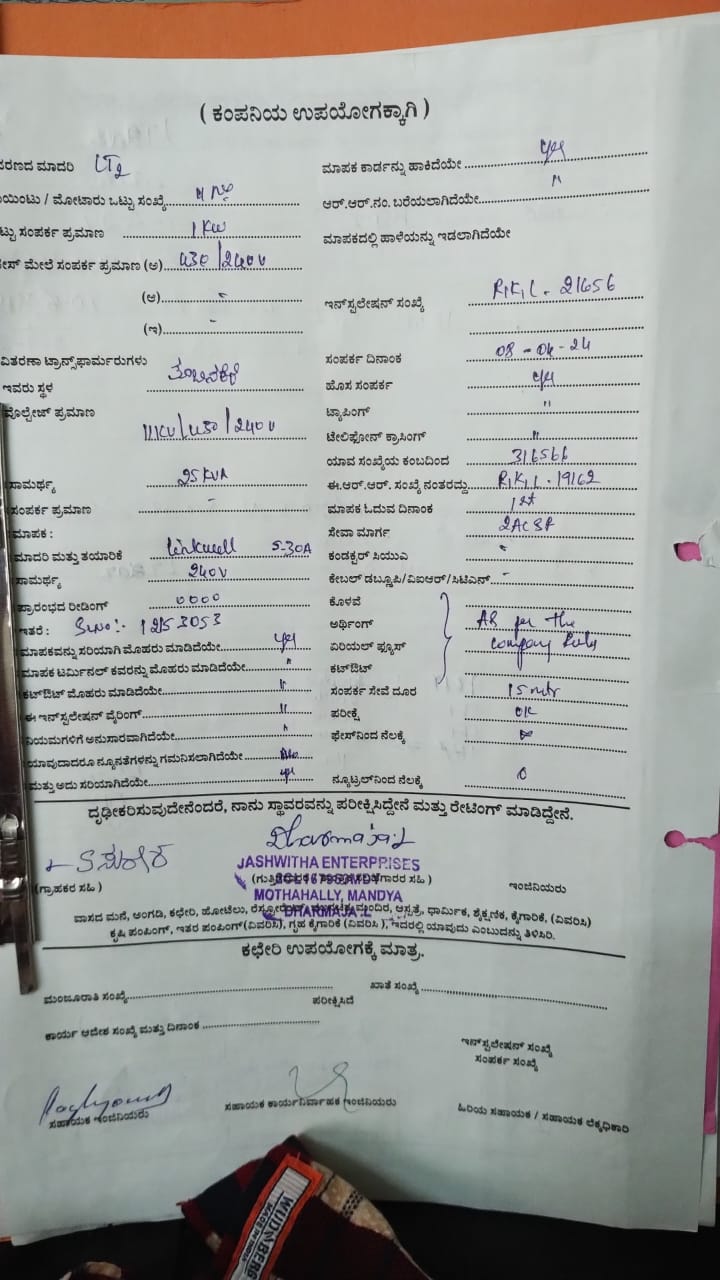 ( ಕಂಪನಿಯ ಉಪಯೋಗಕ್ಕಾಗಿ )
ರಣದ ಮಾದರಿ LT2
ಯಿಂಟು / ಮೋಟಾರು ಒಟ್ಟು ಸಂಖ್ಯೆ 4 No
ಟ್ಟು ಸಂಪರ್ಕ ಪ್ರಮಾಣ 1 KW
ಸ್ ಮೇಲೆ ಸಂಪರ್ಕ ಪ್ರಮಾಣ (ಅ) 430/240V
(ಆ)
(ಇ) -
ವಿತರಣಾ ಟ್ರಾನ್ಸ್‌ಫಾರ್ಮರುಗಳು
ಇವರು ಸ್ಥಳ
ವೊಲ್ಟೇಜ್ ಪ್ರಮಾಣ 11KV/430/240V
ಸಾಮರ್ಥ್ಯ 25KVA
ಸಂಪರ್ಕ ಪ್ರಮಾಣ -
ಮಾಪಕ :
ಮಾದರಿ ಮತ್ತು ತಯಾರಿಕೆ Linkwell 5-30A
ಸಾಮರ್ಥ್ಯ 240V
ಪ್ರಾರಂಭದ ರೀಡಿಂಗ್ 0000
ಇತರೆ : Sl.No:- 12153053
ಮಾಪಕವನ್ನು ಸರಿಯಾಗಿ ಮೊಹರು ಮಾಡಿದೆಯೇ yes
ಮಾಪಕ ಟರ್ಮಿನಲ್ ಕವರನ್ನು ಮೊಹರು ಮಾಡಿದೆಯೇ "
ಕಟ್‌ಔಟ್ ಮೊಹರು ಮಾಡಿದೆಯೇ "
ಈ ಇನ್‌ಸ್ಪಲೇಷನ್ ವೈರಿಂಗ್ "
ನಿಯಮಗಳಿಗೆ ಅನುಸಾರವಾಗಿದೆಯೇ "
ಯಾವುದಾದರೂ ನ್ಯೂನತೆಗಳನ್ನು ಗಮನಿಸಲಾಗಿದೆಯೇ No
ಮತ್ತು ಅದು ಸರಿಯಾಗಿದೆಯೇ yes
ಮಾಪಕ ಕಾರ್ಡನ್ನು ಹಾಕಿದೆಯೇ yes
ಆರ್.ಆರ್.ನಂ. ಬರೆಯಲಾಗಿದೆಯೇ "
ಮಾಪಕದಲ್ಲಿ ಹಾಳೆಯನ್ನು ಇಡಲಾಗಿದೆಯೇ
ಇನ್‌ಸ್ಪಲೇಷನ್ ಸಂಖ್ಯೆ RKL - 21656
ಸಂಪರ್ಕ ದಿನಾಂಕ 08-04-24
ಹೊಸ ಸಂಪರ್ಕ yes
ಟ್ಯಾಪಿಂಗ್ "
ಟೆಲಿಫೋನ್ ಕ್ರಾಸಿಂಗ್ "
ಯಾವ ಸಂಖ್ಯೆಯ ಕಂಬದಿಂದ 316566
ಈ.ಆರ್.ಆರ್. ಸಂಖ್ಯೆ ನಂತರದ್ದು RKL - 19162
ಮಾಪಕ ಓದುವ ದಿನಾಂಕ 1st
ಸೇವಾ ಮಾರ್ಗ 2ACSR
ಕಂಡಕ್ಟರ್ ಸಿಯುಎ
ಕೇಬಲ್ ಡಬ್ಲೂಪಿ/ವಿಐಆರ್/ಸಿಟಿಎಸ್ -
ಕೊಳವೆ
ಅರ್ಥಿಂಗ್ As per the
ಏರಿಯಲ್ ಫ್ಯೂಸ್ company Rules
ಕಟ್‌ಔಟ್
ಸಂಪರ್ಕ ಸೇವೆ ದೂರ 15 mtr
ಪರೀಕ್ಷೆ OK
ಫೇಸ್‌ನಿಂದ ನೆಲಕ್ಕೆ
ನ್ಯೂಟ್ರಲ್‌ನಿಂದ ನೆಲಕ್ಕೆ 0
ದೃಢೀಕರಿಸುವುದೇನೆಂದರೆ, ನಾನು ಸ್ಥಾವರವನ್ನು ಪರೀಕ್ಷಿಸಿದ್ದೇನೆ ಮತ್ತು ರೇಟಿಂಗ್ ಮಾಡಿದ್ದೇನೆ.
Dharmaja.L
JASHWITHA ENTERPRISES
(ಗ್ರಾಹಕರ ಸಹಿ ) ಇಂಜಿನಿಯರು
MOTHAHALLY, MANDYA
DHARMAJA .L
ವಾಸದ ಮನೆ, ಅಂಗಡಿ, ಕಛೇರಿ, ಹೋಟೆಲು, ಆಸ್ಪತ್ರೆ, ಧಾರ್ಮಿಕ, ಶೈಕ್ಷಣಿಕ, ಕೈಗಾರಿಕೆ, (ವಿವರಿಸಿ)
ಕೃಷಿ ಪಂಪಿಂಗ್, ಇತರ ಪಂಪಿಂಗ್(ವಿವರಿಸಿ), ಗೃಹ ಕೈಗಾರಿಕೆ (ವಿವರಿಸಿ ), ಇದರಲ್ಲಿ ಯಾವುದು ಎಂಬುದನ್ನು ತಿಳಿಸಿರಿ.
ಕಛೇರಿ ಉಪಯೋಗಕ್ಕೆ ಮಾತ್ರ.
ಮಂಜೂರಾತಿ ಸಂಖ್ಯೆ ಖಾತೆ ಸಂಖ್ಯೆ
ಪರೀಕ್ಷಿಸಿದೆ
ಕಾರ್ಯ ಆದೇಶ ಸಂಖ್ಯೆ ಮತ್ತು ದಿನಾಂಕ
ಇನ್‌ಸ್ಪಲೇಷನ್ ಸಂಖ್ಯೆ
ಸಂಪರ್ಕ ಸಂಖ್ಯೆ
ಸಹಾಯಕ ಇಂಜಿನಿಯರು ಸಹಾಯಕ ಕಾರ್ಯನಿರ್ವಾಹಕ ಇಂಜಿನಿಯರು ಹಿರಿಯ ಸಹಾಯಕ / ಸಹಾಯಕ ಲೆಕ್ಕಧಿಕಾರಿ
WUDNBERG
MADE IN INDIA